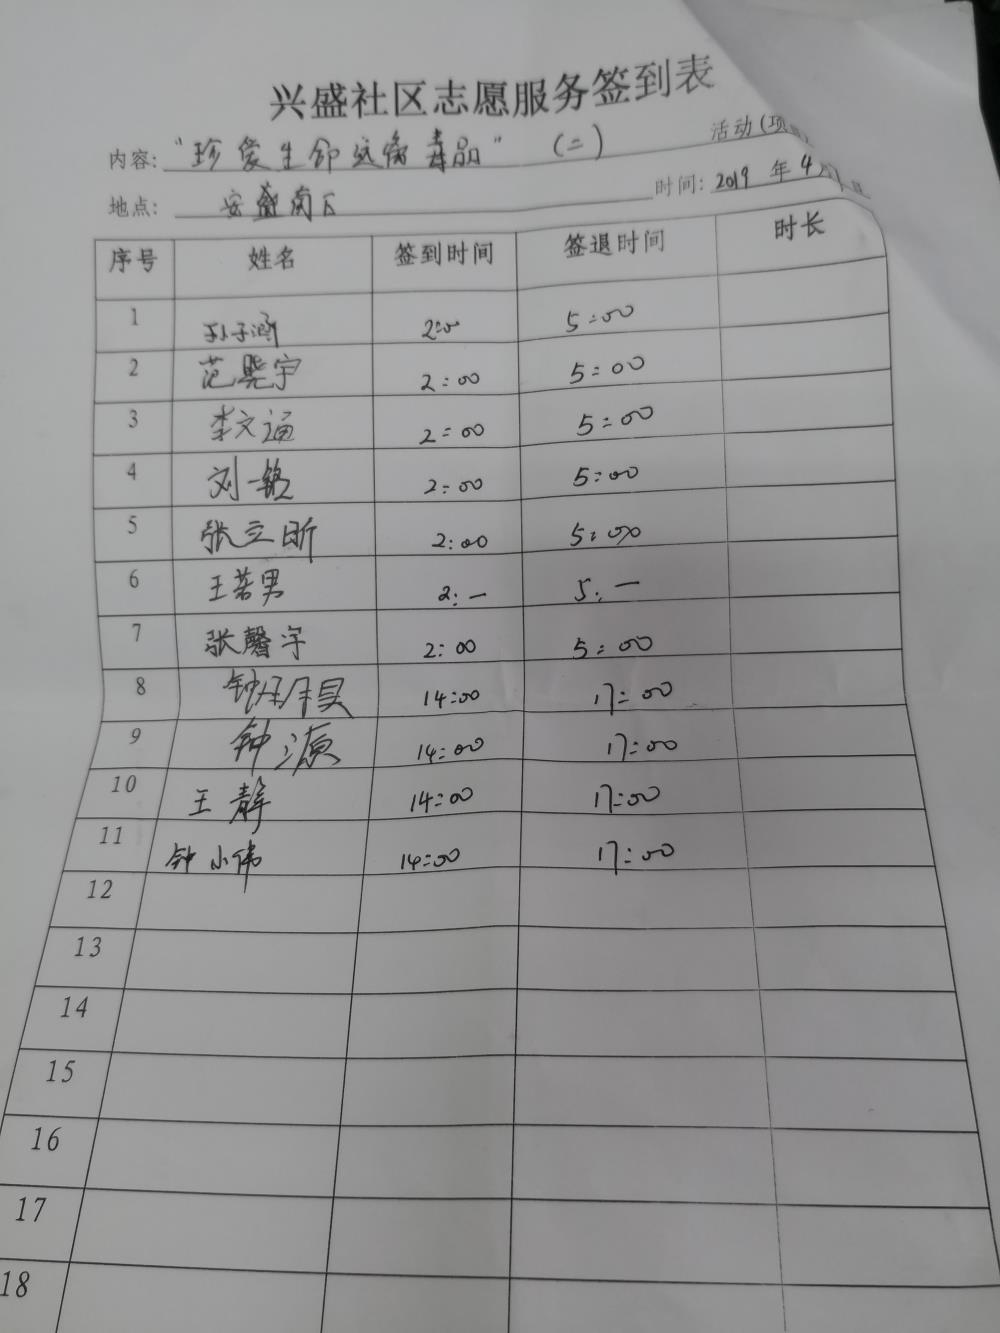 兴盛社区志愿服务签到表
内容: "珍爱生命远离毒品" (二) 活动(项
地点: 安盛南区 时间: 2019 年 4
序号 姓名 签到时间 签退时间 时长
1 孙子涵 2:00 5:00
2 范晓宇 2:00 5:00
3 李文涵 2:00 5:00
4 刘一铭 2:00 5:00
5 张立昕 2:00 5:00
6 王若男 2:— 5:—
7 张馨宇 2:00 5:00
8 钟 14:00 17:00
9 钟源 14:00 17:00
10 王静 14:00 17:00
11 钟小伟 14:00 17:00
12
13
14
15
16
17
18